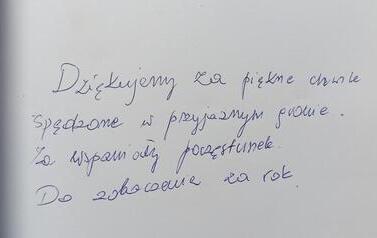 Dziękujemy za piękne chwile
spędzone w przyjaznym gronie.
Za wspaniały poczęstunek.
Do zobaczenia za rok.